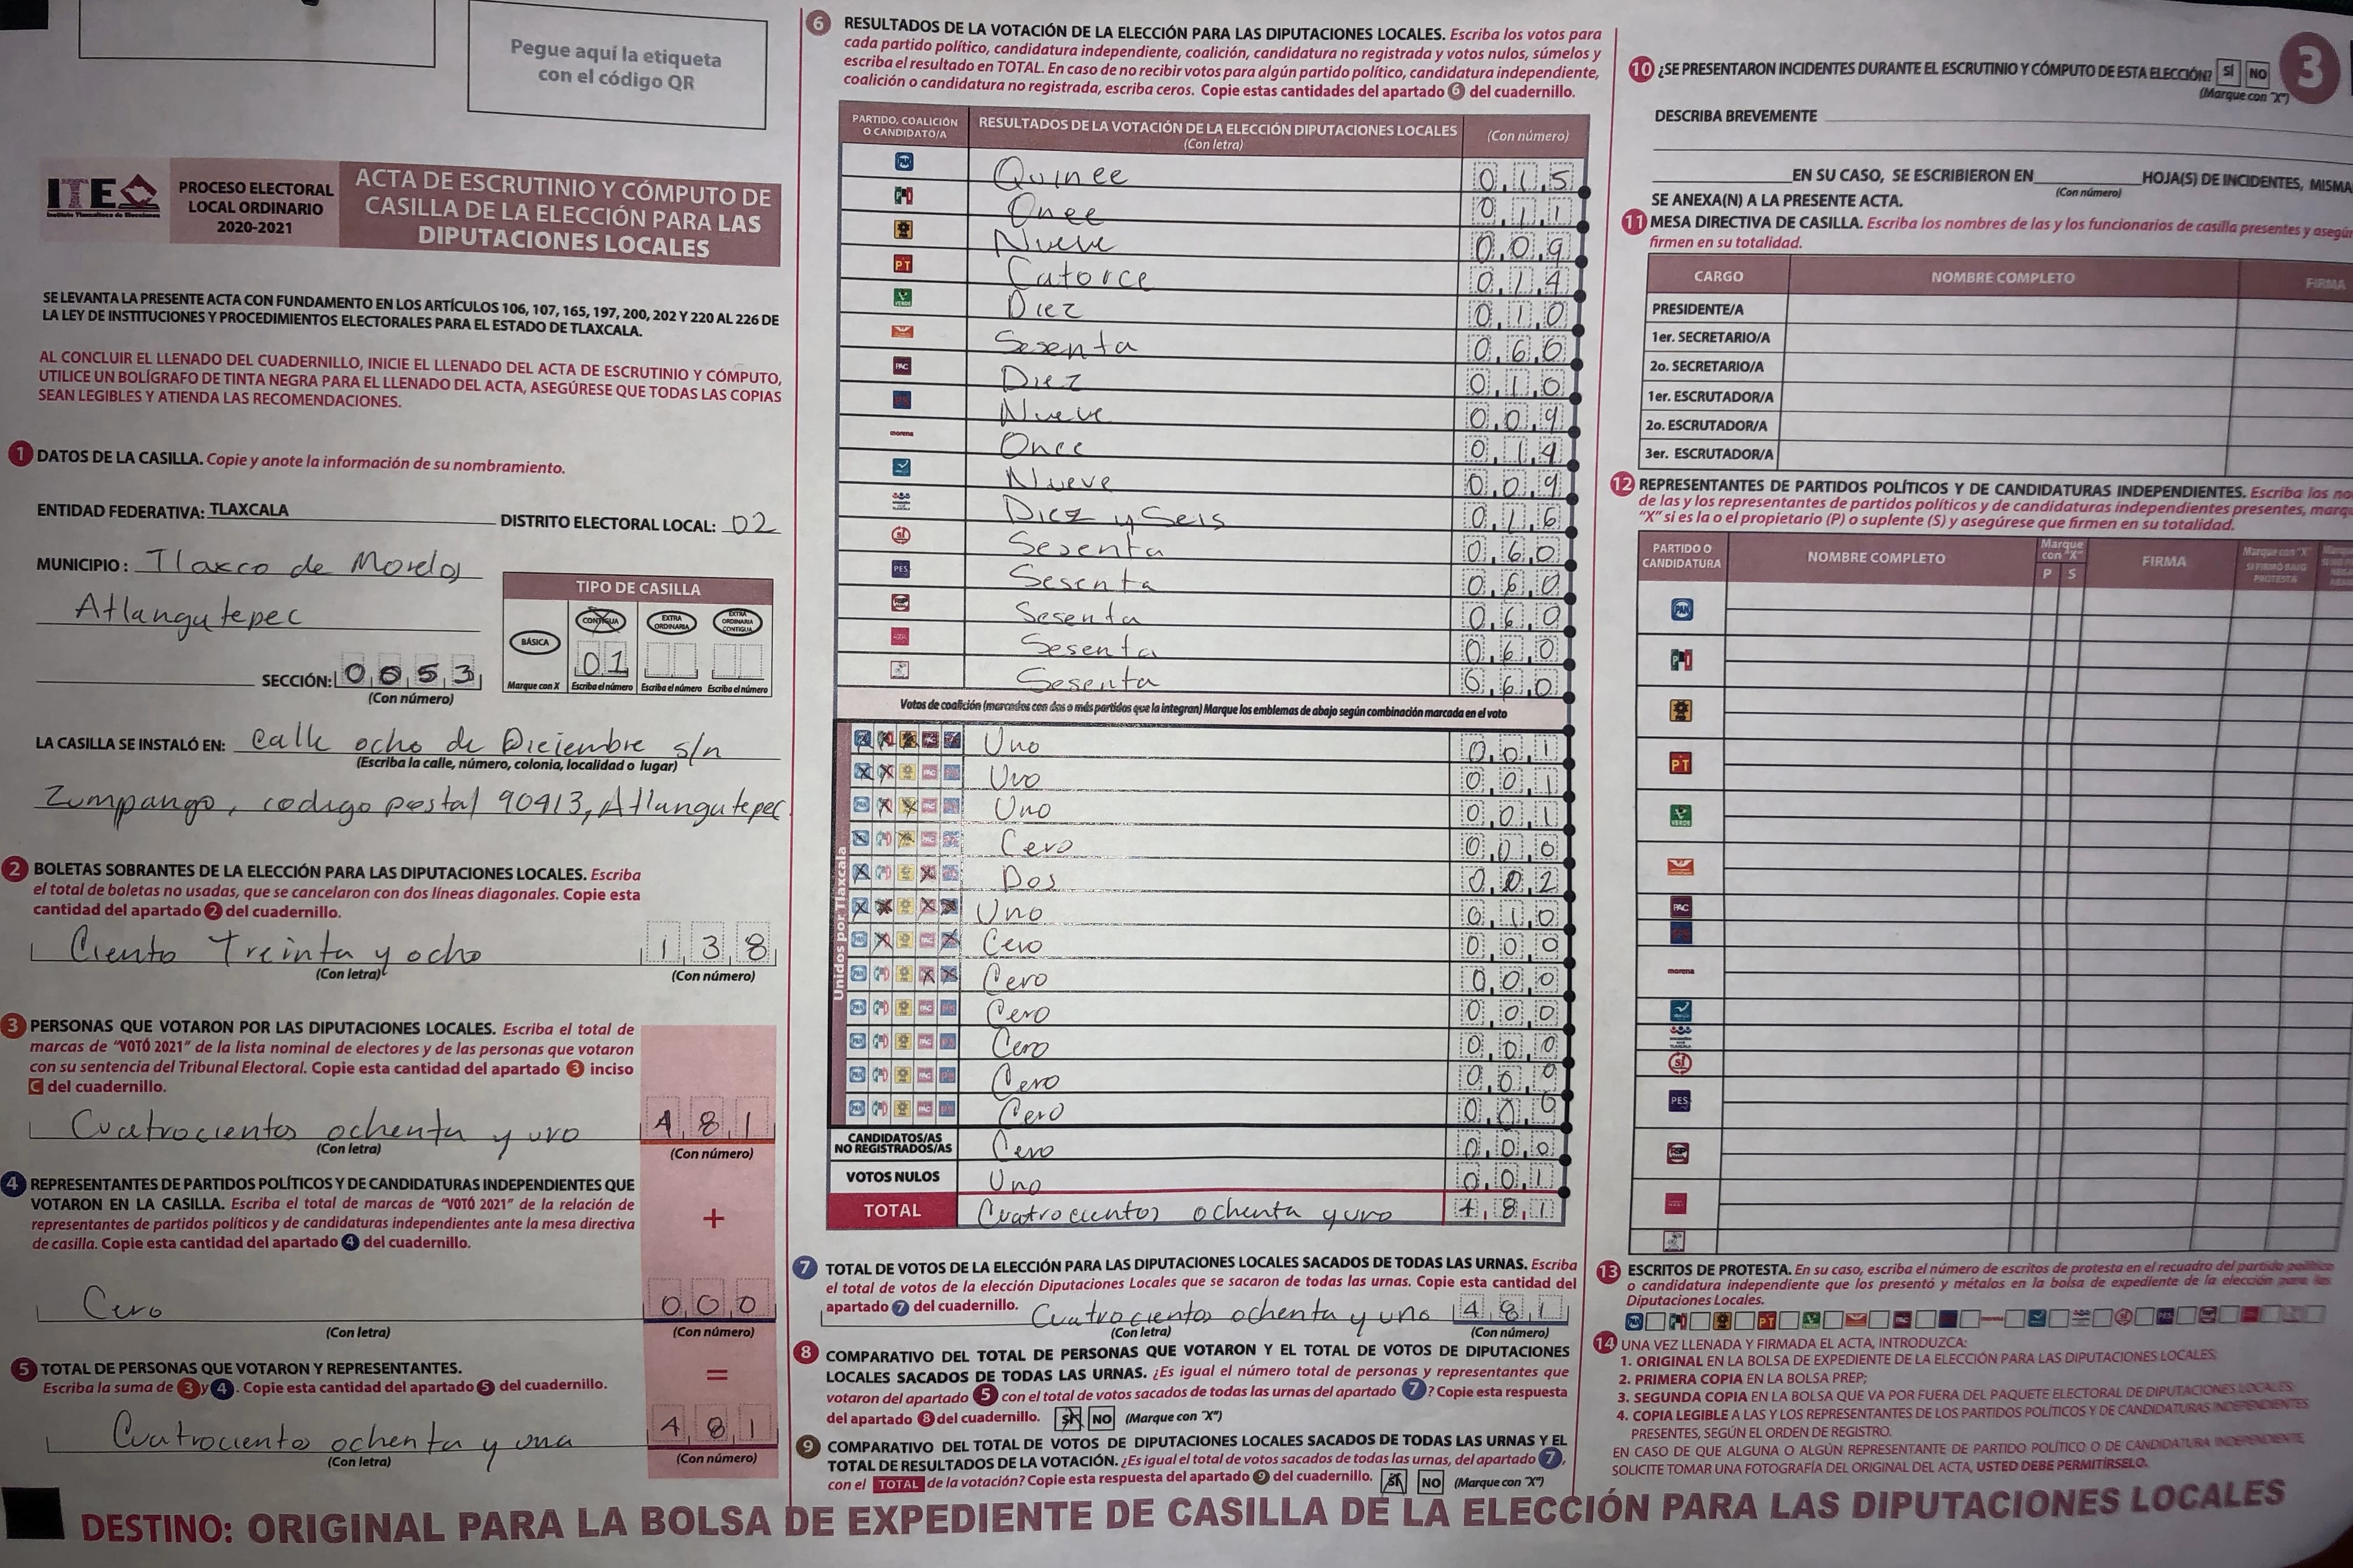 Pegue aquí la etiqueta
con el código QR
ITE
Instituto Tlaxcalteca de Elecciones
PROCESO ELECTORAL
LOCAL ORDINARIO
2020-2021
ACTA DE ESCRUTINIO Y CÓMPUTO DE
CASILLA DE LA ELECCIÓN PARA LAS
DIPUTACIONES LOCALES
SE LEVANTA LA PRESENTE ACTA CON FUNDAMENTO EN LOS ARTÍCULOS 106, 107, 165, 197, 200, 202 Y 220 AL 226 DE
LA LEY DE INSTITUCIONES Y PROCEDIMIENTOS ELECTORALES PARA EL ESTADO DE TLAXCALA.
AL CONCLUIR EL LLENADO DEL CUADERNILLO, INICIE EL LLENADO DEL ACTA DE ESCRUTINIO Y CÓMPUTO,
UTILICE UN BOLÍGRAFO DE TINTA NEGRA PARA EL LLENADO DEL ACTA, ASEGÚRESE QUE TODAS LAS COPIAS
SEAN LEGIBLES Y ATIENDA LAS RECOMENDACIONES.
1 DATOS DE LA CASILLA. Copie y anote la información de su nombramiento.
ENTIDAD FEDERATIVA: TLAXCALA DISTRITO ELECTORAL LOCAL: 02
MUNICIPIO: Tlaxco de Morelos
Atlangatepec
SECCIÓN: 0053
(Con número)
TIPO DE CASILLA
BÁSICA CONTIGUA EXTRA ORDINARIA EXTRA ORDINARIA CONTIGUA
01
Marque con X Escriba el número Escriba el número Escriba el número
LA CASILLA SE INSTALÓ EN: Calle ocho de Diciembre s/n
(Escriba la calle, número, colonia, localidad o lugar)
Zumpango, codigo postal 90413, Atlangatepec.
2 BOLETAS SOBRANTES DE LA ELECCIÓN PARA LAS DIPUTACIONES LOCALES. Escriba
el total de boletas no usadas, que se cancelaron con dos líneas diagonales. Copie esta
cantidad del apartado 2 del cuadernillo.
Ciento Treinta y ocho 138
(Con letra) (Con número)
3 PERSONAS QUE VOTARON POR LAS DIPUTACIONES LOCALES. Escriba el total de
marcas de "VOTÓ 2021" de la lista nominal de electores y de las personas que votaron
con su sentencia del Tribunal Electoral. Copie esta cantidad del apartado 3 inciso
C del cuadernillo.
Cuatrocientos ochenta y uno 481
(Con letra) (Con número)
4 REPRESENTANTES DE PARTIDOS POLÍTICOS Y DE CANDIDATURAS INDEPENDIENTES QUE
VOTARON EN LA CASILLA. Escriba el total de marcas de "VOTÓ 2021" de la relación de
representantes de partidos políticos y de candidaturas independientes ante la mesa directiva
de casilla. Copie esta cantidad del apartado 4 del cuadernillo.
+
Cero 000
(Con letra) (Con número)
5 TOTAL DE PERSONAS QUE VOTARON Y REPRESENTANTES.
Escriba la suma de 3 y 4. Copie esta cantidad del apartado 5 del cuadernillo.
=
Cuatrociento ochenta y una 481
(Con letra) (Con número)
6 RESULTADOS DE LA VOTACIÓN DE LA ELECCIÓN PARA LAS DIPUTACIONES LOCALES. Escriba los votos para
cada partido político, candidatura independiente, coalición, candidatura no registrada y votos nulos, súmelos y
escriba el resultado en TOTAL. En caso de no recibir votos para algún partido político, candidatura independiente,
coalición o candidatura no registrada, escriba ceros. Copie estas cantidades del apartado 6 del cuadernillo.
PARTIDO, COALICIÓN O CANDIDATO/A RESULTADOS DE LA VOTACIÓN DE LA ELECCIÓN DIPUTACIONES LOCALES (Con letra) (Con número)
PAN Quince 015
PRI Once 011
PRD Nueve 009
PT Catorce 014
VERDE Diez 010
Sesenta 060
PAC Diez 010
PS Nueve 009
morena Once 014
Nueve 009
Diez y Seis 016
sí Sesenta 060
PES Sesenta 060
RSP Sesenta 060
Sesenta 060
Sesenta 060
Votos de coalición (marcados con dos o más partidos que la integran) Marque los emblemas de abajo según combinación marcada en el voto
Unidos por Tlaxcala
Uno 001
Uno 001
Uno 001
Cero 000
Dos 002
Uno 010
Cero 000
Cero 000
Cero 000
Cero 000
Cero 000
Cero 000
CANDIDATOS/AS NO REGISTRADOS/AS Cero 000
VOTOS NULOS Uno 001
TOTAL Cuatrocientos ochenta y uno 481
7 TOTAL DE VOTOS DE LA ELECCIÓN PARA LAS DIPUTACIONES LOCALES SACADOS DE TODAS LAS URNAS. Escriba
el total de votos de la elección Diputaciones Locales que se sacaron de todas las urnas. Copie esta cantidad del
apartado 7 del cuadernillo. Cuatrocientos ochenta y uno 481
(Con letra) (Con número)
8 COMPARATIVO DEL TOTAL DE PERSONAS QUE VOTARON Y EL TOTAL DE VOTOS DE DIPUTACIONES
LOCALES SACADOS DE TODAS LAS URNAS. ¿Es igual el número total de personas y representantes que
votaron del apartado 5 con el total de votos sacados de todas las urnas del apartado 7? Copie esta respuesta
del apartado 8 del cuadernillo. SÍ NO (Marque con "X")
9 COMPARATIVO DEL TOTAL DE VOTOS DE DIPUTACIONES LOCALES SACADOS DE TODAS LAS URNAS Y EL
TOTAL DE RESULTADOS DE LA VOTACIÓN. ¿Es igual el total de votos sacados de todas las urnas, del apartado 7,
con el TOTAL de la votación? Copie esta respuesta del apartado 9 del cuadernillo. SÍ NO (Marque con "X")
10 ¿SE PRESENTARON INCIDENTES DURANTE EL ESCRUTINIO Y CÓMPUTO DE ESTA ELECCIÓN? SÍ NO
(Marque con "X")
3
DESCRIBA BREVEMENTE
EN SU CASO, SE ESCRIBIERON EN HOJA(S) DE INCIDENTES, MISMA
(Con número)
SE ANEXA(N) A LA PRESENTE ACTA.
11 MESA DIRECTIVA DE CASILLA. Escriba los nombres de las y los funcionarios de casilla presentes y asegúr
firmen en su totalidad.
CARGO NOMBRE COMPLETO FIRMA
PRESIDENTE/A
1er. SECRETARIO/A
2o. SECRETARIO/A
1er. ESCRUTADOR/A
2o. ESCRUTADOR/A
3er. ESCRUTADOR/A
12 REPRESENTANTES DE PARTIDOS POLÍTICOS Y DE CANDIDATURAS INDEPENDIENTES. Escriba los no
de las y los representantes de partidos políticos y de candidaturas independientes presentes, marq
"X" si es la o el propietario (P) o suplente (S) y asegúrese que firmen en su totalidad.
PARTIDO O CANDIDATURA NOMBRE COMPLETO Marque con "X" P S FIRMA Marque con "X" SI FIRMÓ BAJO PROTESTA
PAN
PRI
PRD
PT
VERDE
PAC
PS
morena
sí
PES
RSP
13 ESCRITOS DE PROTESTA. En su caso, escriba el número de escritos de protesta en el recuadro del partido político
o candidatura independiente que los presentó y métalos en la bolsa de expediente de la elección para las
Diputaciones Locales.
14 UNA VEZ LLENADA Y FIRMADA EL ACTA, INTRODUZCA:
1. ORIGINAL EN LA BOLSA DE EXPEDIENTE DE LA ELECCIÓN PARA LAS DIPUTACIONES LOCALES;
2. PRIMERA COPIA EN LA BOLSA PREP;
3. SEGUNDA COPIA EN LA BOLSA QUE VA POR FUERA DEL PAQUETE ELECTORAL DE DIPUTACIONES LOCALES;
4. COPIA LEGIBLE A LAS Y LOS REPRESENTANTES DE LOS PARTIDOS POLÍTICOS Y DE CANDIDATURAS INDEPENDIENTES
PRESENTES, SEGÚN EL ORDEN DE REGISTRO.
EN CASO DE QUE ALGUNA O ALGÚN REPRESENTANTE DE PARTIDO POLÍTICO O DE CANDIDATURA INDEPENDIENTE,
SOLICITE TOMAR UNA FOTOGRAFÍA DEL ORIGINAL DEL ACTA, USTED DEBE PERMITÍRSELO.
DESTINO: ORIGINAL PARA LA BOLSA DE EXPEDIENTE DE CASILLA DE LA ELECCIÓN PARA LAS DIPUTACIONES LOCALES